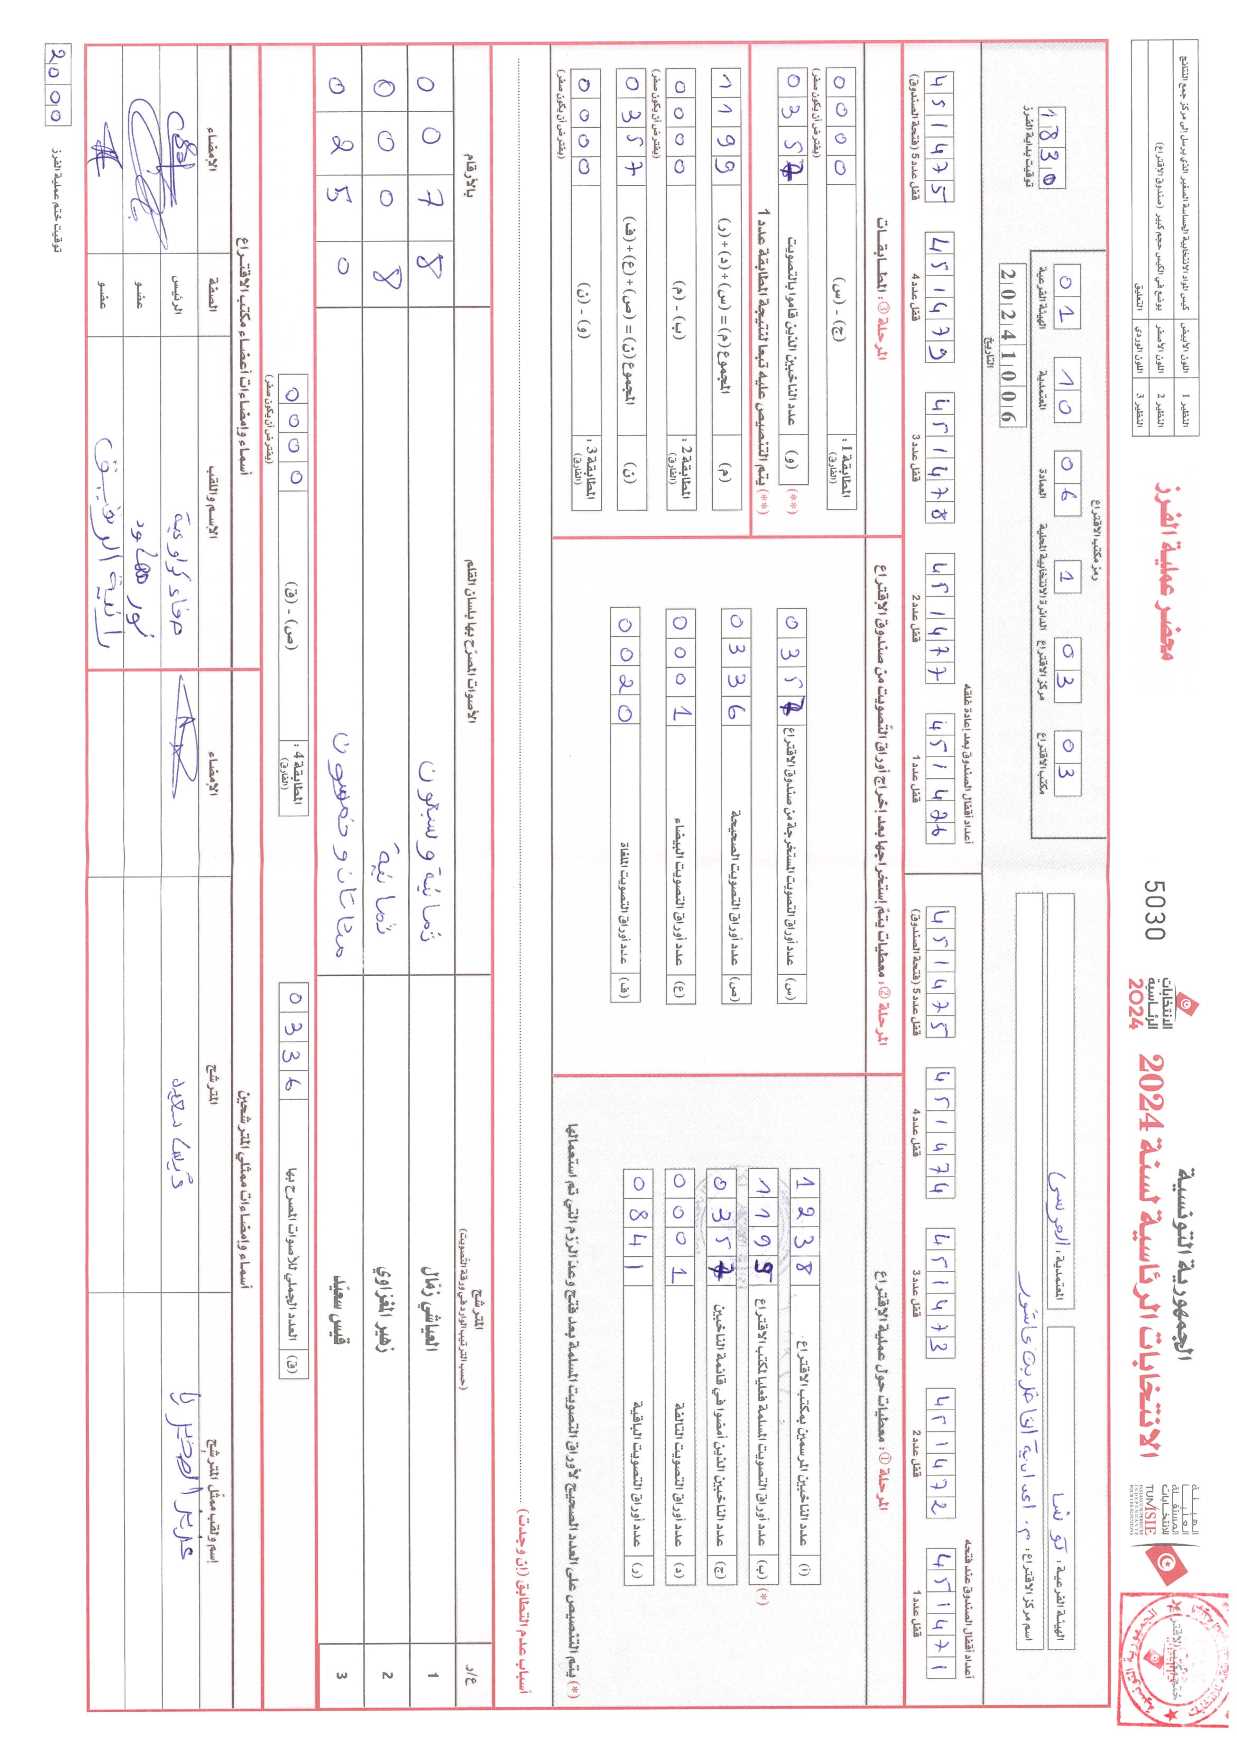 الجمهورية التونسية
الانتخابات الرئاسية لسنة 2024
الانتخابات
الرئاسية
2024
5030
محضر عملية الفرز
الهيئة
العليا
المستقلة
للانتخابات
TUNISIE
النظير 1 اللون الأبيض كيس المواد الانتخابية الحساسة الصغير الذي يرسل إلى مركز جمع النتائج
النظير 2 اللون الأصفر يوضع في الكيس حجم كبير (صندوق الاقتراع)
النظير 3 اللون الوردي التعليق
الهيئة الفرعية : تونس 1
المعتمدية : المرسى
رمز مكتب الاقتراع
01 10 06 1 03 03
الهيئة الفرعية المعتمدية العمادة الدائرة الانتخابية المحلية مركز الاقتراع مكتب الاقتراع
1830
توقيت بداية الفرز
التاريخ
20241006
أعداد أقفال الصندوق عند فتحه
451471 451472 451473 451474 451475
قفل عدد 1 قفل عدد 2 قفل عدد 3 قفل عدد 4 قفل عدد 5 (فتحة الصندوق)
أعداد أقفال الصندوق بعد إعادة غلقه
451476 451477 451478 451479 451475
قفل عدد 1 قفل عدد 2 قفل عدد 3 قفل عدد 4 قفل عدد 5 (فتحة الصندوق)
المرحلة ① : معطيات حول عملية الاقتراع
(أ) عدد الناخبين المرسمين بمكتب الاقتراع 1238
(ب) عدد أوراق التصويت المسلمة فعليا لمكتب الاقتراع 1199 (*)
(ج) عدد الناخبين الذين أمضوا في قائمة الناخبين 0357
(د) عدد أوراق التصويت التالفة 0001
(ر) عدد أوراق التصويت الباقية 0841
(*) يتم التنصيص على العدد الصحيح لأوراق التصويت المسلمة بعد فتح وعد الرزم التي تم استعمالها
المرحلة ② : معطيات يتم إستخراجها بعد إخراج أوراق التصويت من صندوق الاقتراع
(س) عدد أوراق التصويت المستخرجة من صندوق الاقتراع 0357
(ص) عدد أوراق التصويت الصحيحة 0336
(ع) عدد أوراق التصويت البيضاء 0001
(ف) عدد أوراق التصويت الملغاة 0020
المرحلة ③ : المطابقات
المطابقة 1 : (الفارق) (ج) - (س) 0000 (يفترض أن يكون صفر)
(**) (و) عدد الناخبين الذين قاموا بالتصويت 0357
(**) يتم التنصيص عليه تبعا لنتيجة المطابقة عدد 1
(م) المجموع (م) = (س) + (د) + (ر) 1199
المطابقة 2 : (الفارق) (ب) - (م) 0000 (يفترض أن يكون صفر)
(ن) المجموع (ن) = (ص) + (ع) + (ف) 0357
المطابقة 3 : (الفارق) (و) - (ن) 0000 (يفترض أن يكون صفر)
أسباب عدم التطابق (إن وجدت)
ع/ر المترشح (حسب الترتيب الوارد في ورقة التصويت) الأصوات المصرّح بها بلسان القلم بالأرقام
1 العياشي زمّال ثمانية وسبعون 0078
2 زهير المغزاوي ثمانية 0008
3 قيس سعيّد مئتان وخمسون 0250
(ق) العدد الجملي للأصوات المصرح بها 0336
المطابقة 4 : (الفارق) (ص) - (ق) 0000 (يفترض أن يكون صفر)
أسماء وإمضاءات ممثلي المترشحين
إسم ولقب ممثل المترشح المترشح الإمضاء
قيس سعيد
أسماء وإمضاءات أعضاء مكتب الاقتراع
الإسم واللقب الصفة الإمضاء
الرئيس
عضو
عضو
2000
توقيت ختم عملية الفرز